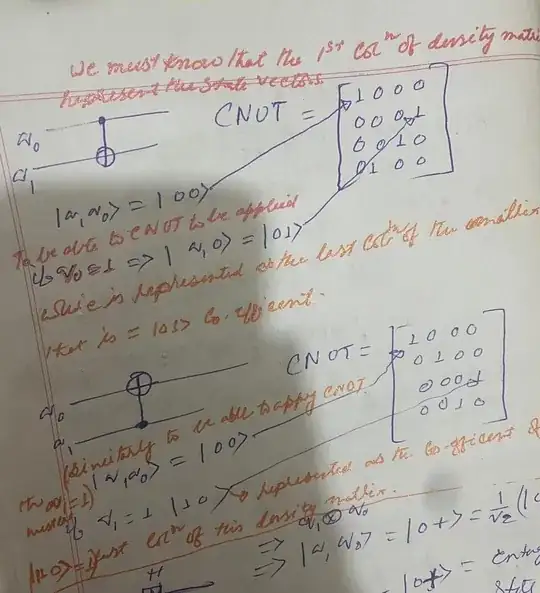 We must know that the 1st Colⁿ of density matri
represent the state vectors
q₀
q₁
CNOT =
1 0 0 0
0 0 0 1
0 0 1 0
0 1 0 0
|q₁q₀⟩ = |00⟩
To be able to CNOT to be applied
q₀ = 1 => | q₁0⟩ = |01⟩
which is represented as the last Colⁿ of the matrix
that is = |01> Co-efficient.
q₀
q₁
CNOT =
1 0 0 0
0 1 0 0
0 0 0 1
0 0 1 0
Similarly to be able to apply CNOT
|q₁q₀⟩ = |00⟩
the (q₁=1)
must
q₁ = 1 |10⟩ represented as the Co-efficient of
|10⟩ = last Colⁿ of this density matrix.
=> q₁ ⊗ q₀
=> |q₁q₀⟩ = |0+⟩ = 1/√2 (|0
H
= |0+⟩ = Entag
State